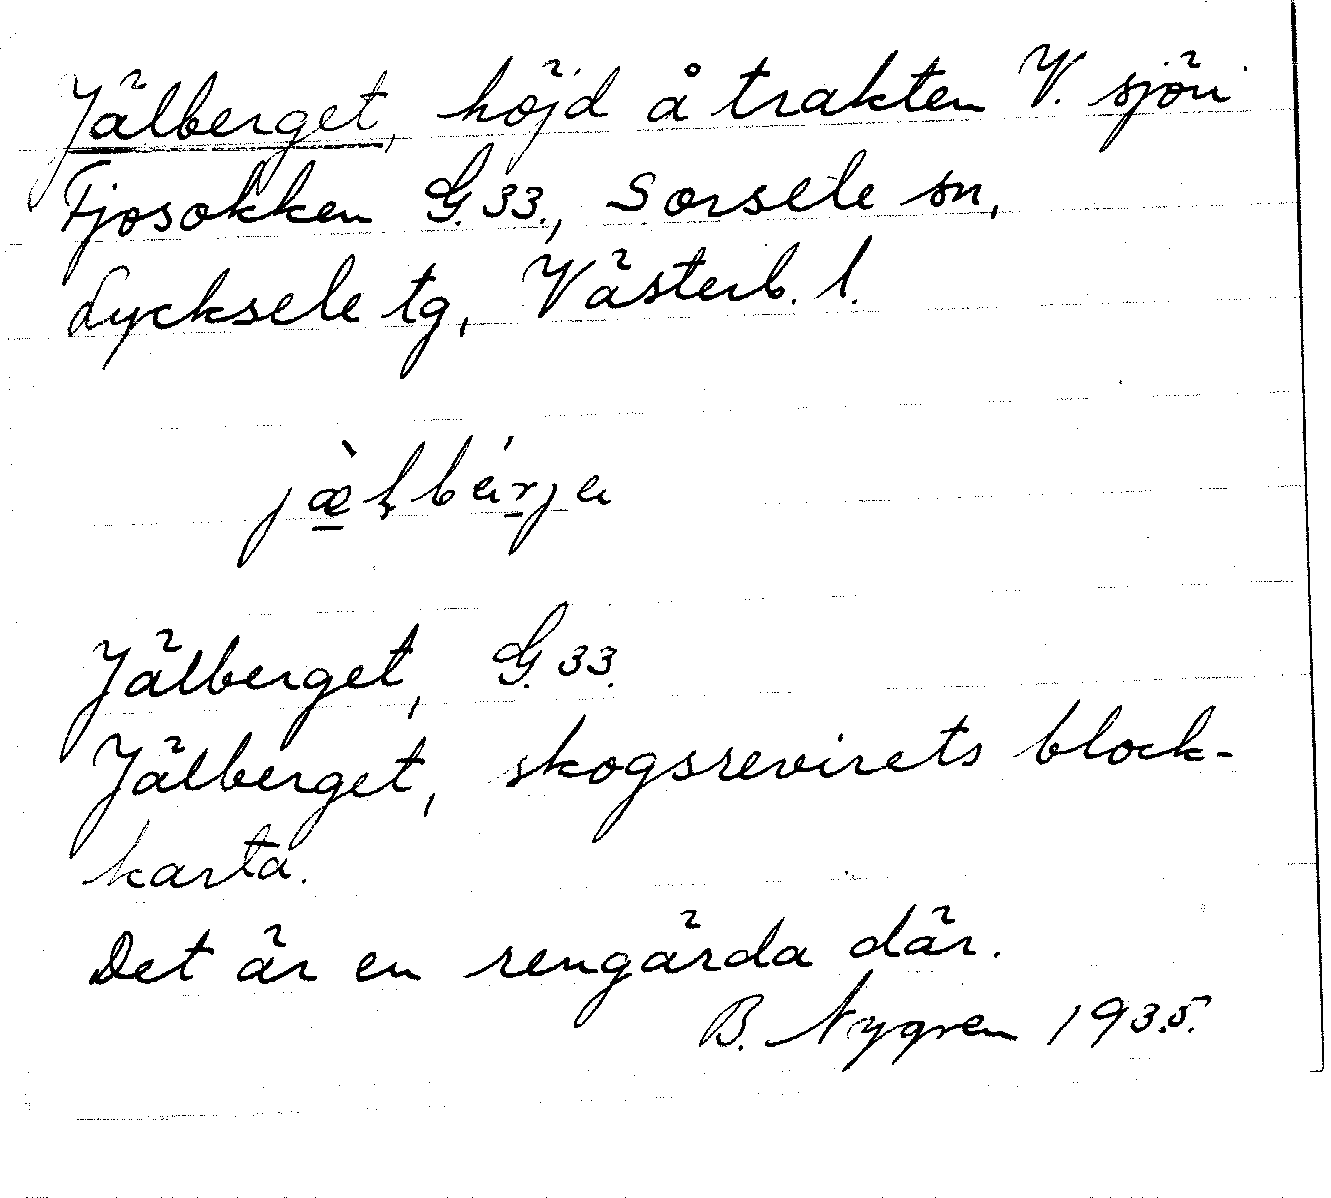 Jälberget, höjd å trakten V. sjön
Fjosokken G.33., Sorsele sn,
Lycksele tg, Västerb. l.
Jälberget, G.33.
Jälberget, skogsrevirets block-
karta.
Det är en rengärda där.
B. Nygren 1935.